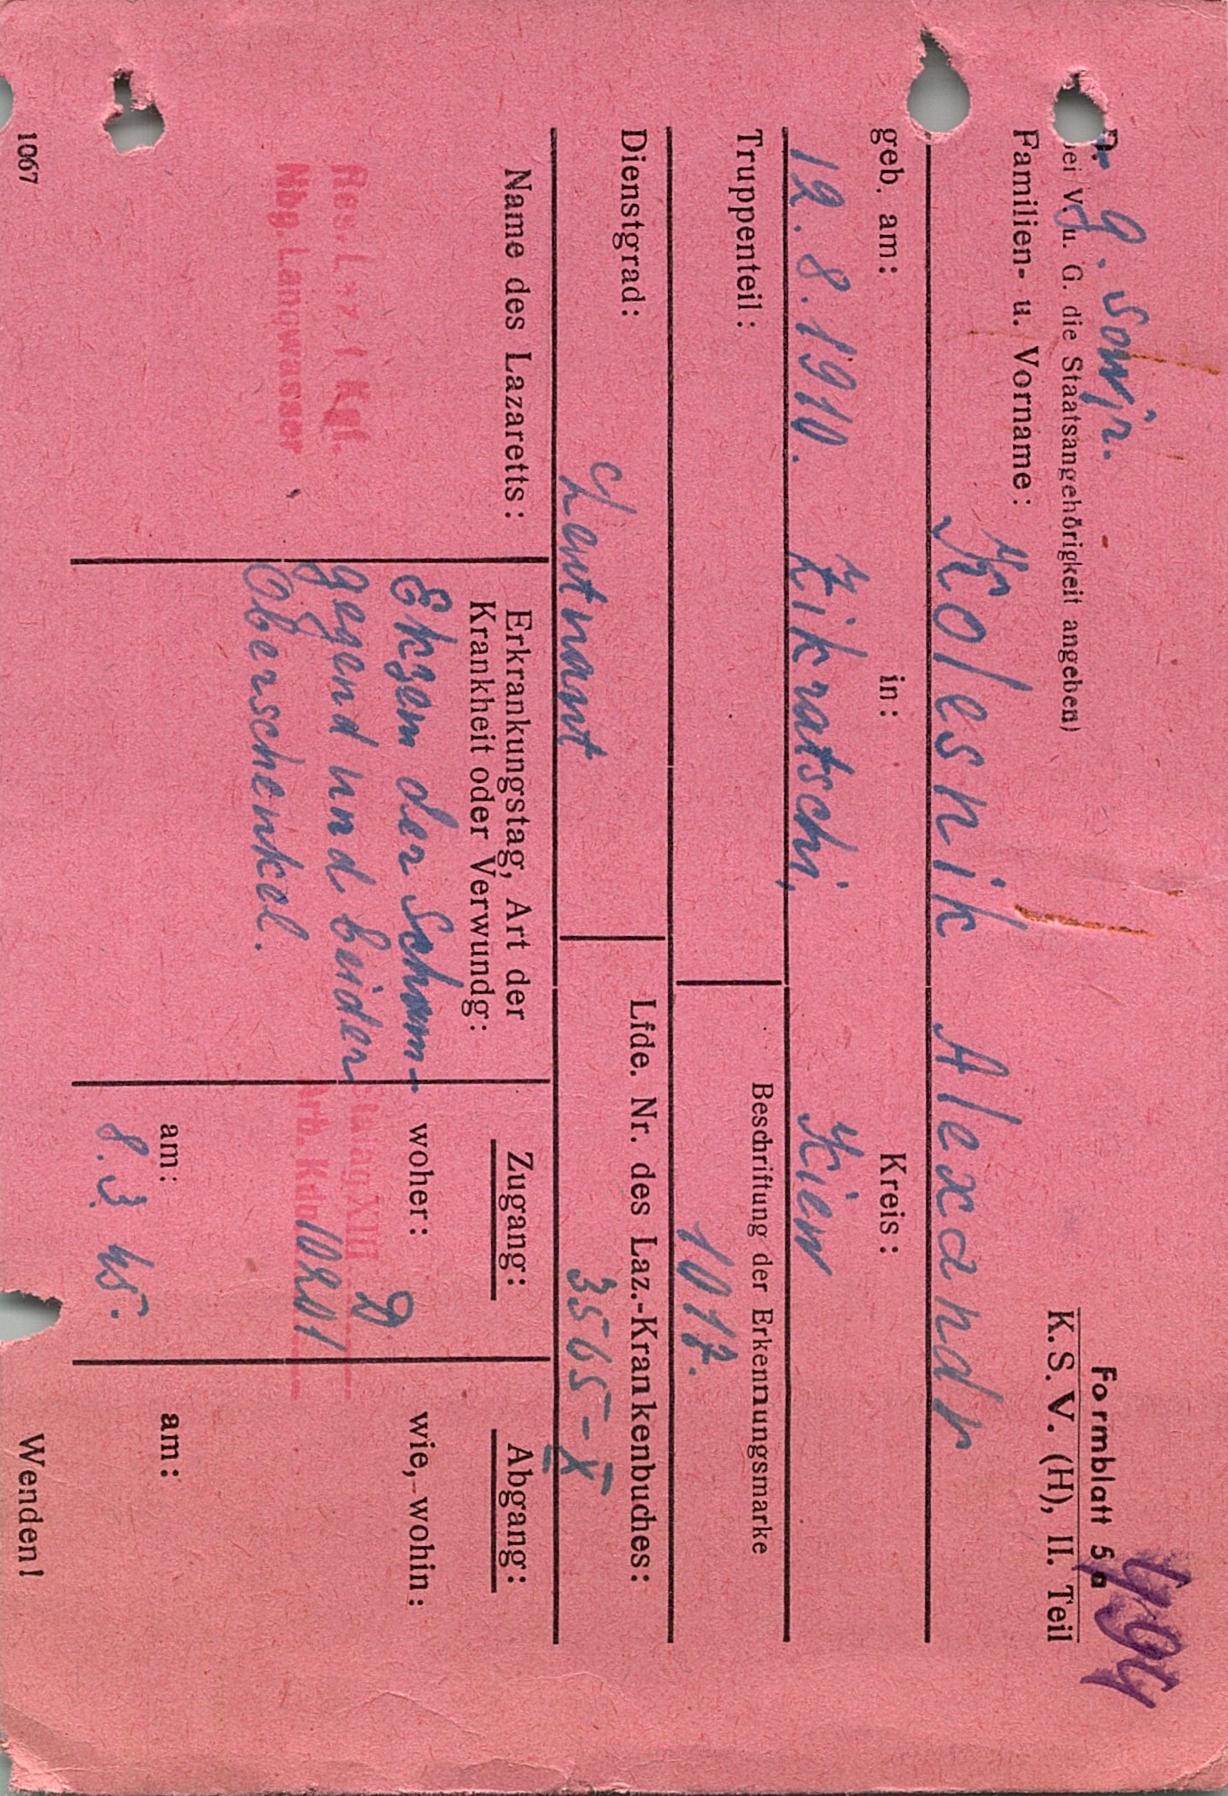 Formblatt 5a
K.S.V. (H), II. Teil
g. sowjr.
bei V. u. G. die Staatsangehörigkeit angeben)
Familien- u. Vorname:
Kolesnik Alexandr
geb. am: in: Kreis:
12. 8. 1910. Zikratschi, Kiew
Truppenteil: Beschriftung der Erkennungsmarke
1017.
Dienstgrad: Lfde. Nr. des Laz.-Krankenbuches:
Leutnant 3565-X
Name des Lazaretts:
Res. Laz. 1 Kgf.
Nbg. Langwasser
Erkrankungstag, Art der
Krankheit oder Verwundg:
Ekzem der Scham-
gegend und beider
Oberschenkel.
Zugang:
woher:
Stalag XIII D
Arb. Kdo 10201
am:
8. 3. 45.
Abgang:
wie, wohin:
am:
1067
Wenden!